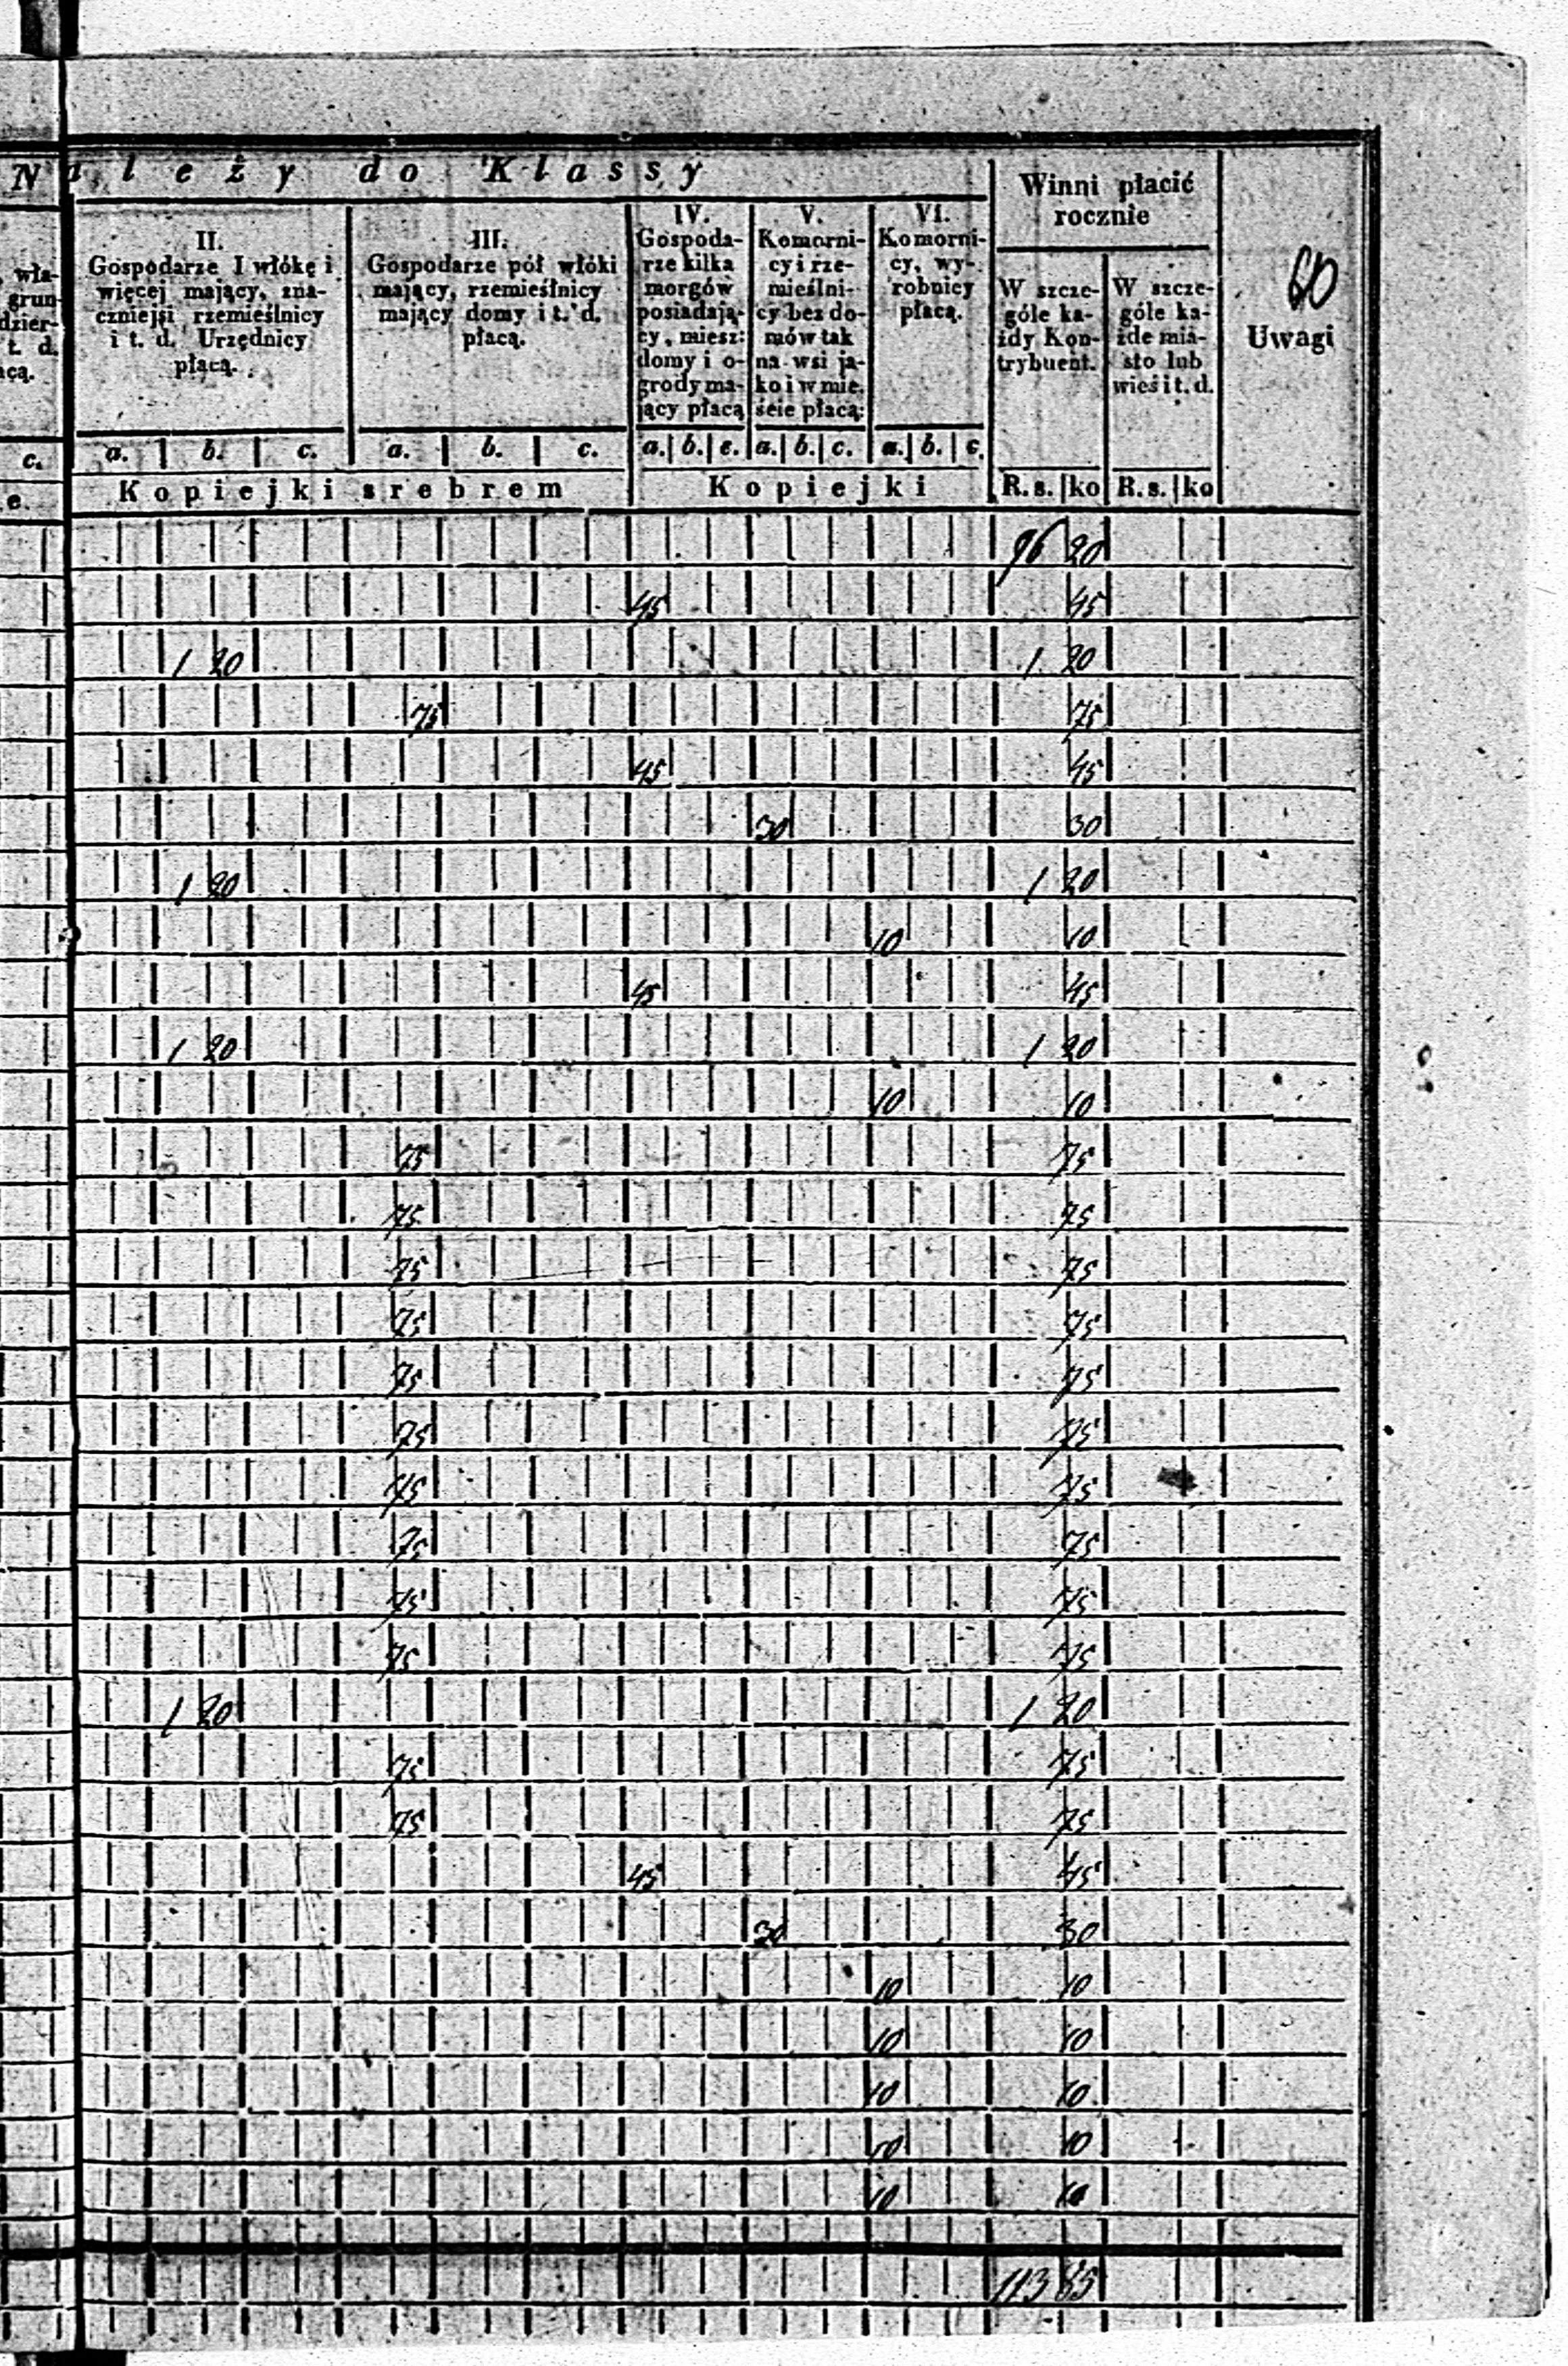 Należy do Klassy
wła-
grun-
dzier-
t. d.
acą.
c.
e.
II.
Gospodarze I włókę i
więcej mający, zna-
czniejsi rzemieślnicy
i t. d. Urzędnicy
płacą.
III.
Gospodarze pół włóki
mający, rzemieślnicy
mający domy i t. d.
płacą.
IV.
Gospoda-
rze kilka
morgów
posiadają-
cy, miesz:
domy i o-
grody ma-
jący płacą
V.
Komorni-
cy i rze-
mieślni-
cy bez do-
mów tak
na wsi ja-
ko i w mie.
ście płacą:
VI.
Komorni-
cy, wy-
robnicy
płacą.
Winni płacić
rocznie
W szcze-
góle ka-
żdy Kon-
trybuent.
W szcze-
góle ka-
żde mia-
sto lub
wieś i t. d.
60
Uwagi
a. b. c. a. b. c. a. b. c. a. b. c. a. b. c.
Kopiejki srebrem Kopiejki R. s. ko R. s. ko
96 20
45 45
1 20 1 20
75 75
45 45
30 30
1 20 1 20
10 10
45 45
1 20 1 20
10 10
75 75
75 75
75 75
75 75
75 75
75 75
75 75
75 75
75 75
75 75
1 20 1 20
75 75
75 75
45 45
30 30
10 10
10 10
10 10
10 10
10 10
113 85